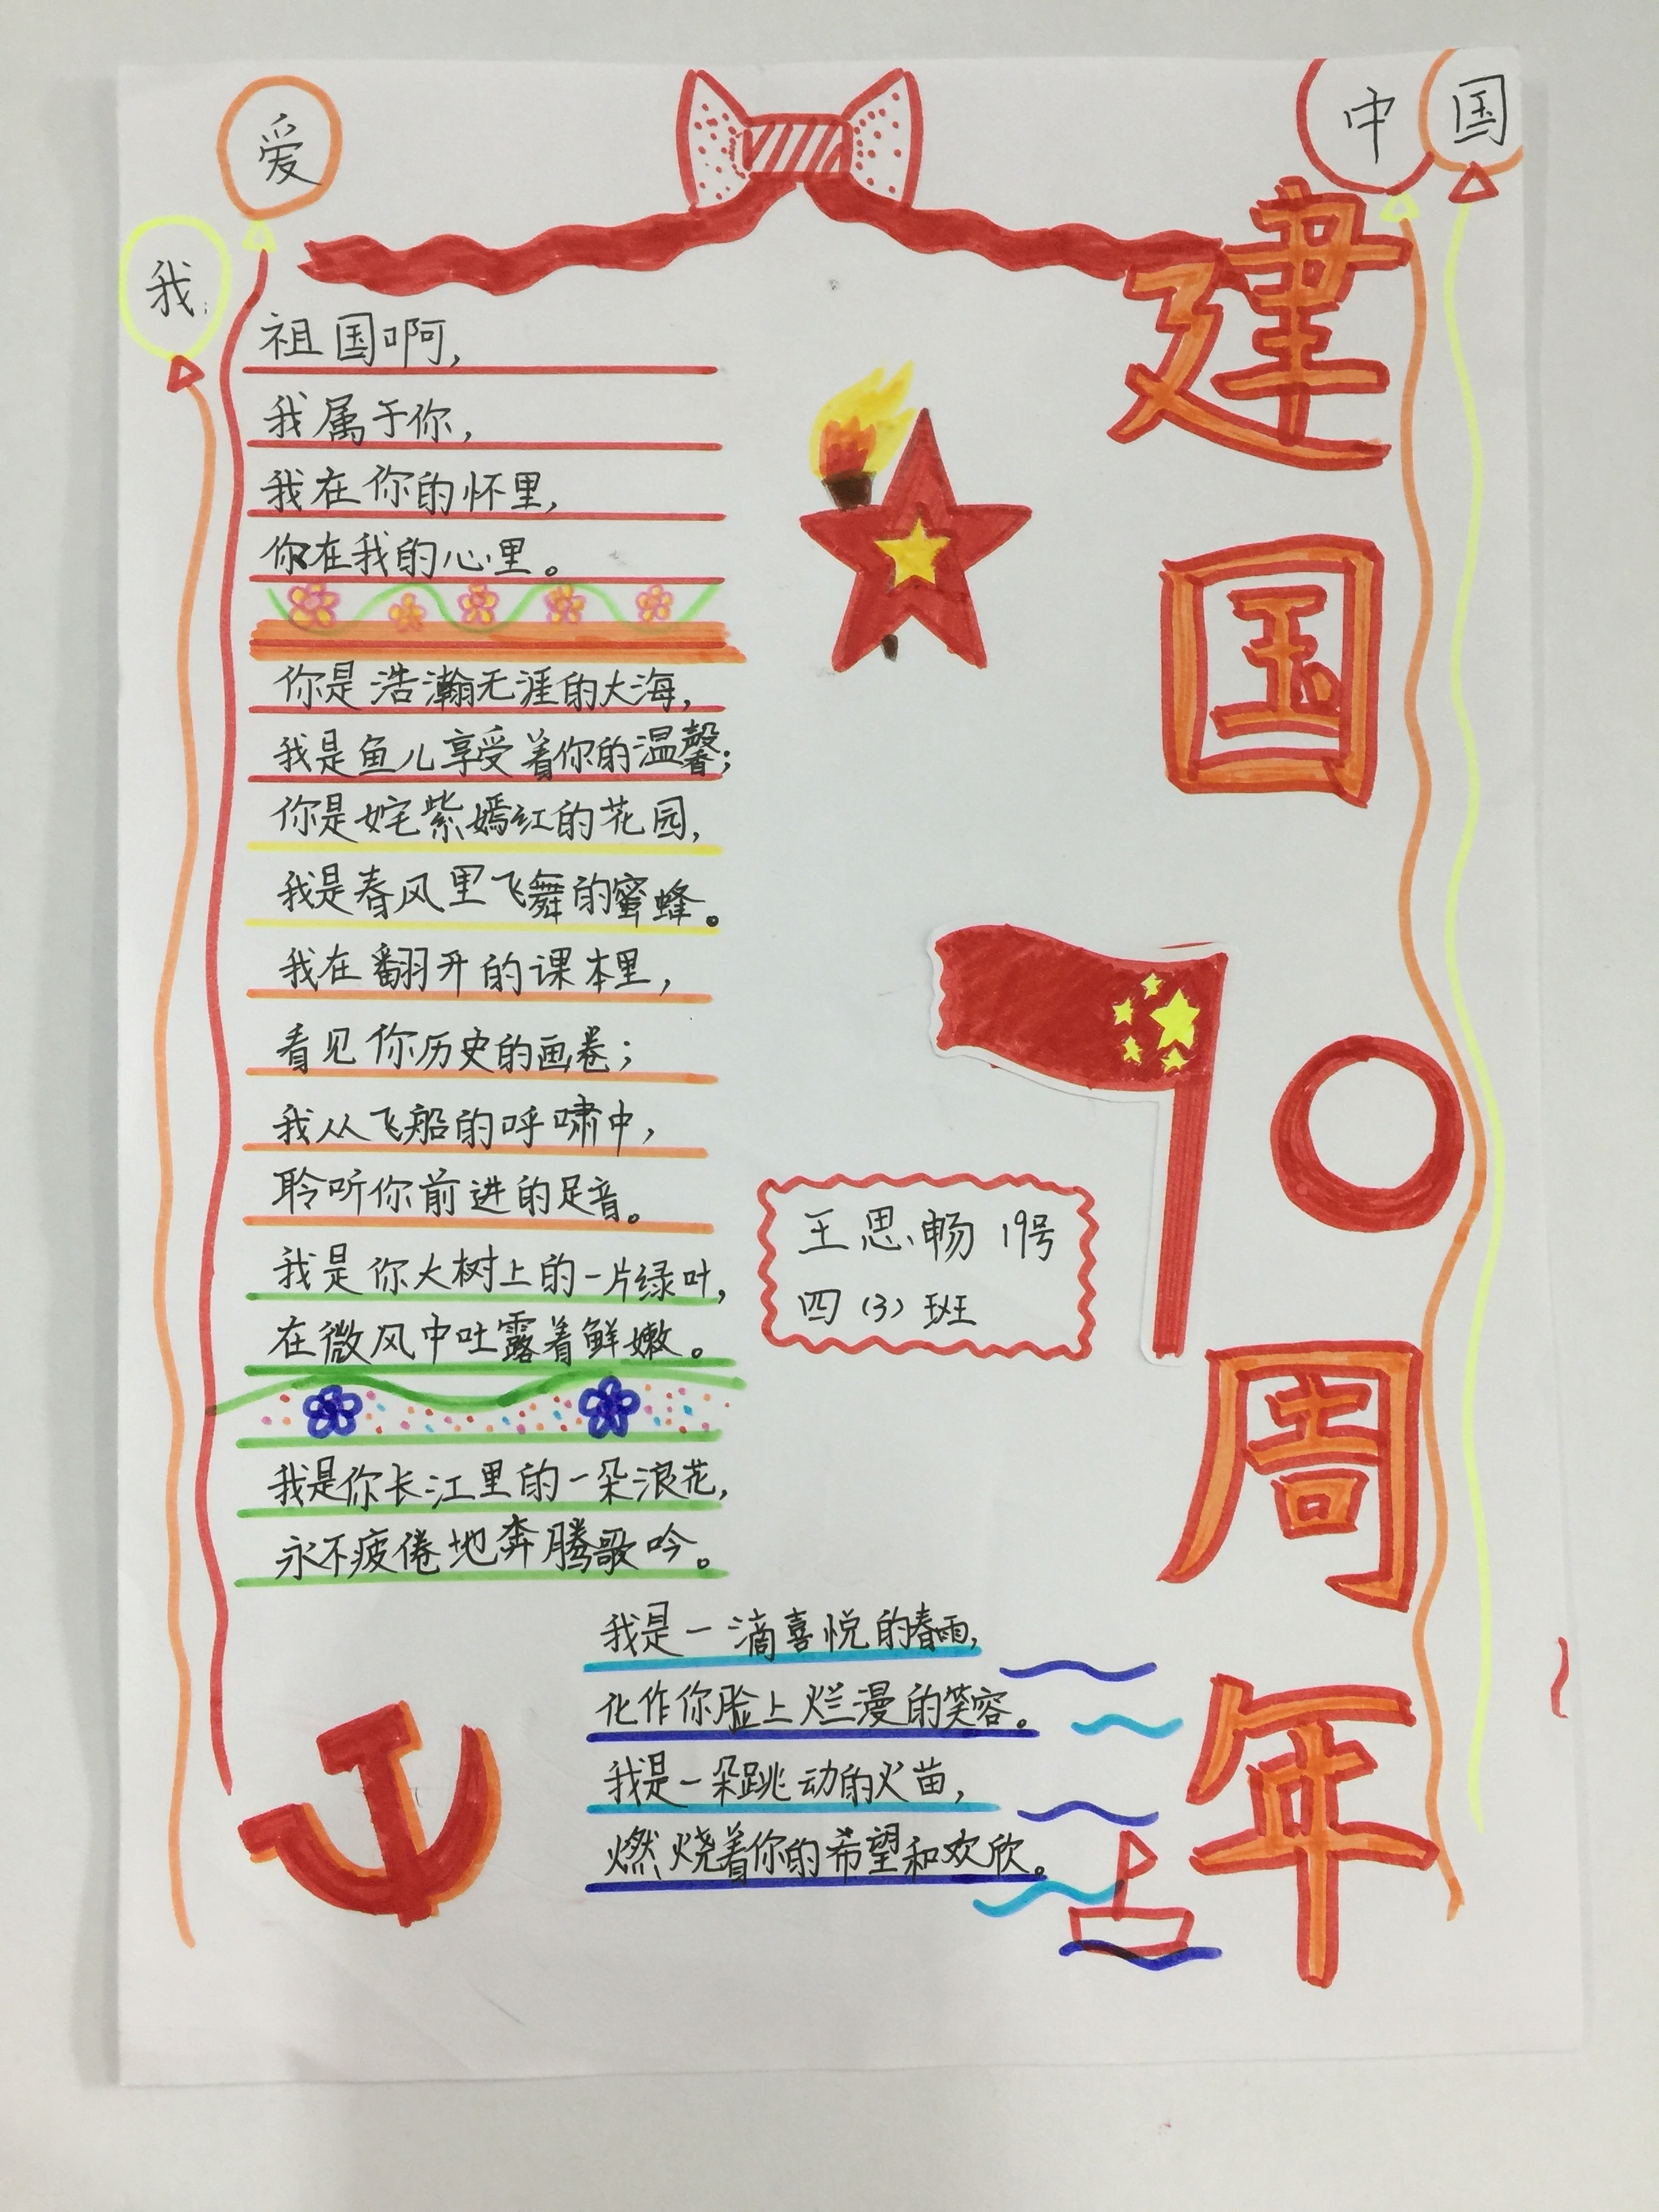 我
爱
中
国
建
国
70
周
年
祖国啊,
我属于你,
我在你的怀里,
你在我的心里。
你是浩瀚无涯的大海,
我是鱼儿享受着你的温馨;
你是姹紫嫣红的花园,
我是春风里飞舞的蜜蜂。
我在翻开的课本里,
看见你历史的画卷;
我从飞船的呼啸中,
聆听你前进的足音。
我是你大树上的一片绿叶,
在微风中吐露着鲜嫩。
我是你长江里的一朵浪花,
永不疲倦地奔腾歌吟。
我是一滴喜悦的春雨,
化作你脸上烂漫的笑容。
我是一朵跳动的火苗,
燃烧着你的希望和欢欣。
王思畅 19号
四(3)班